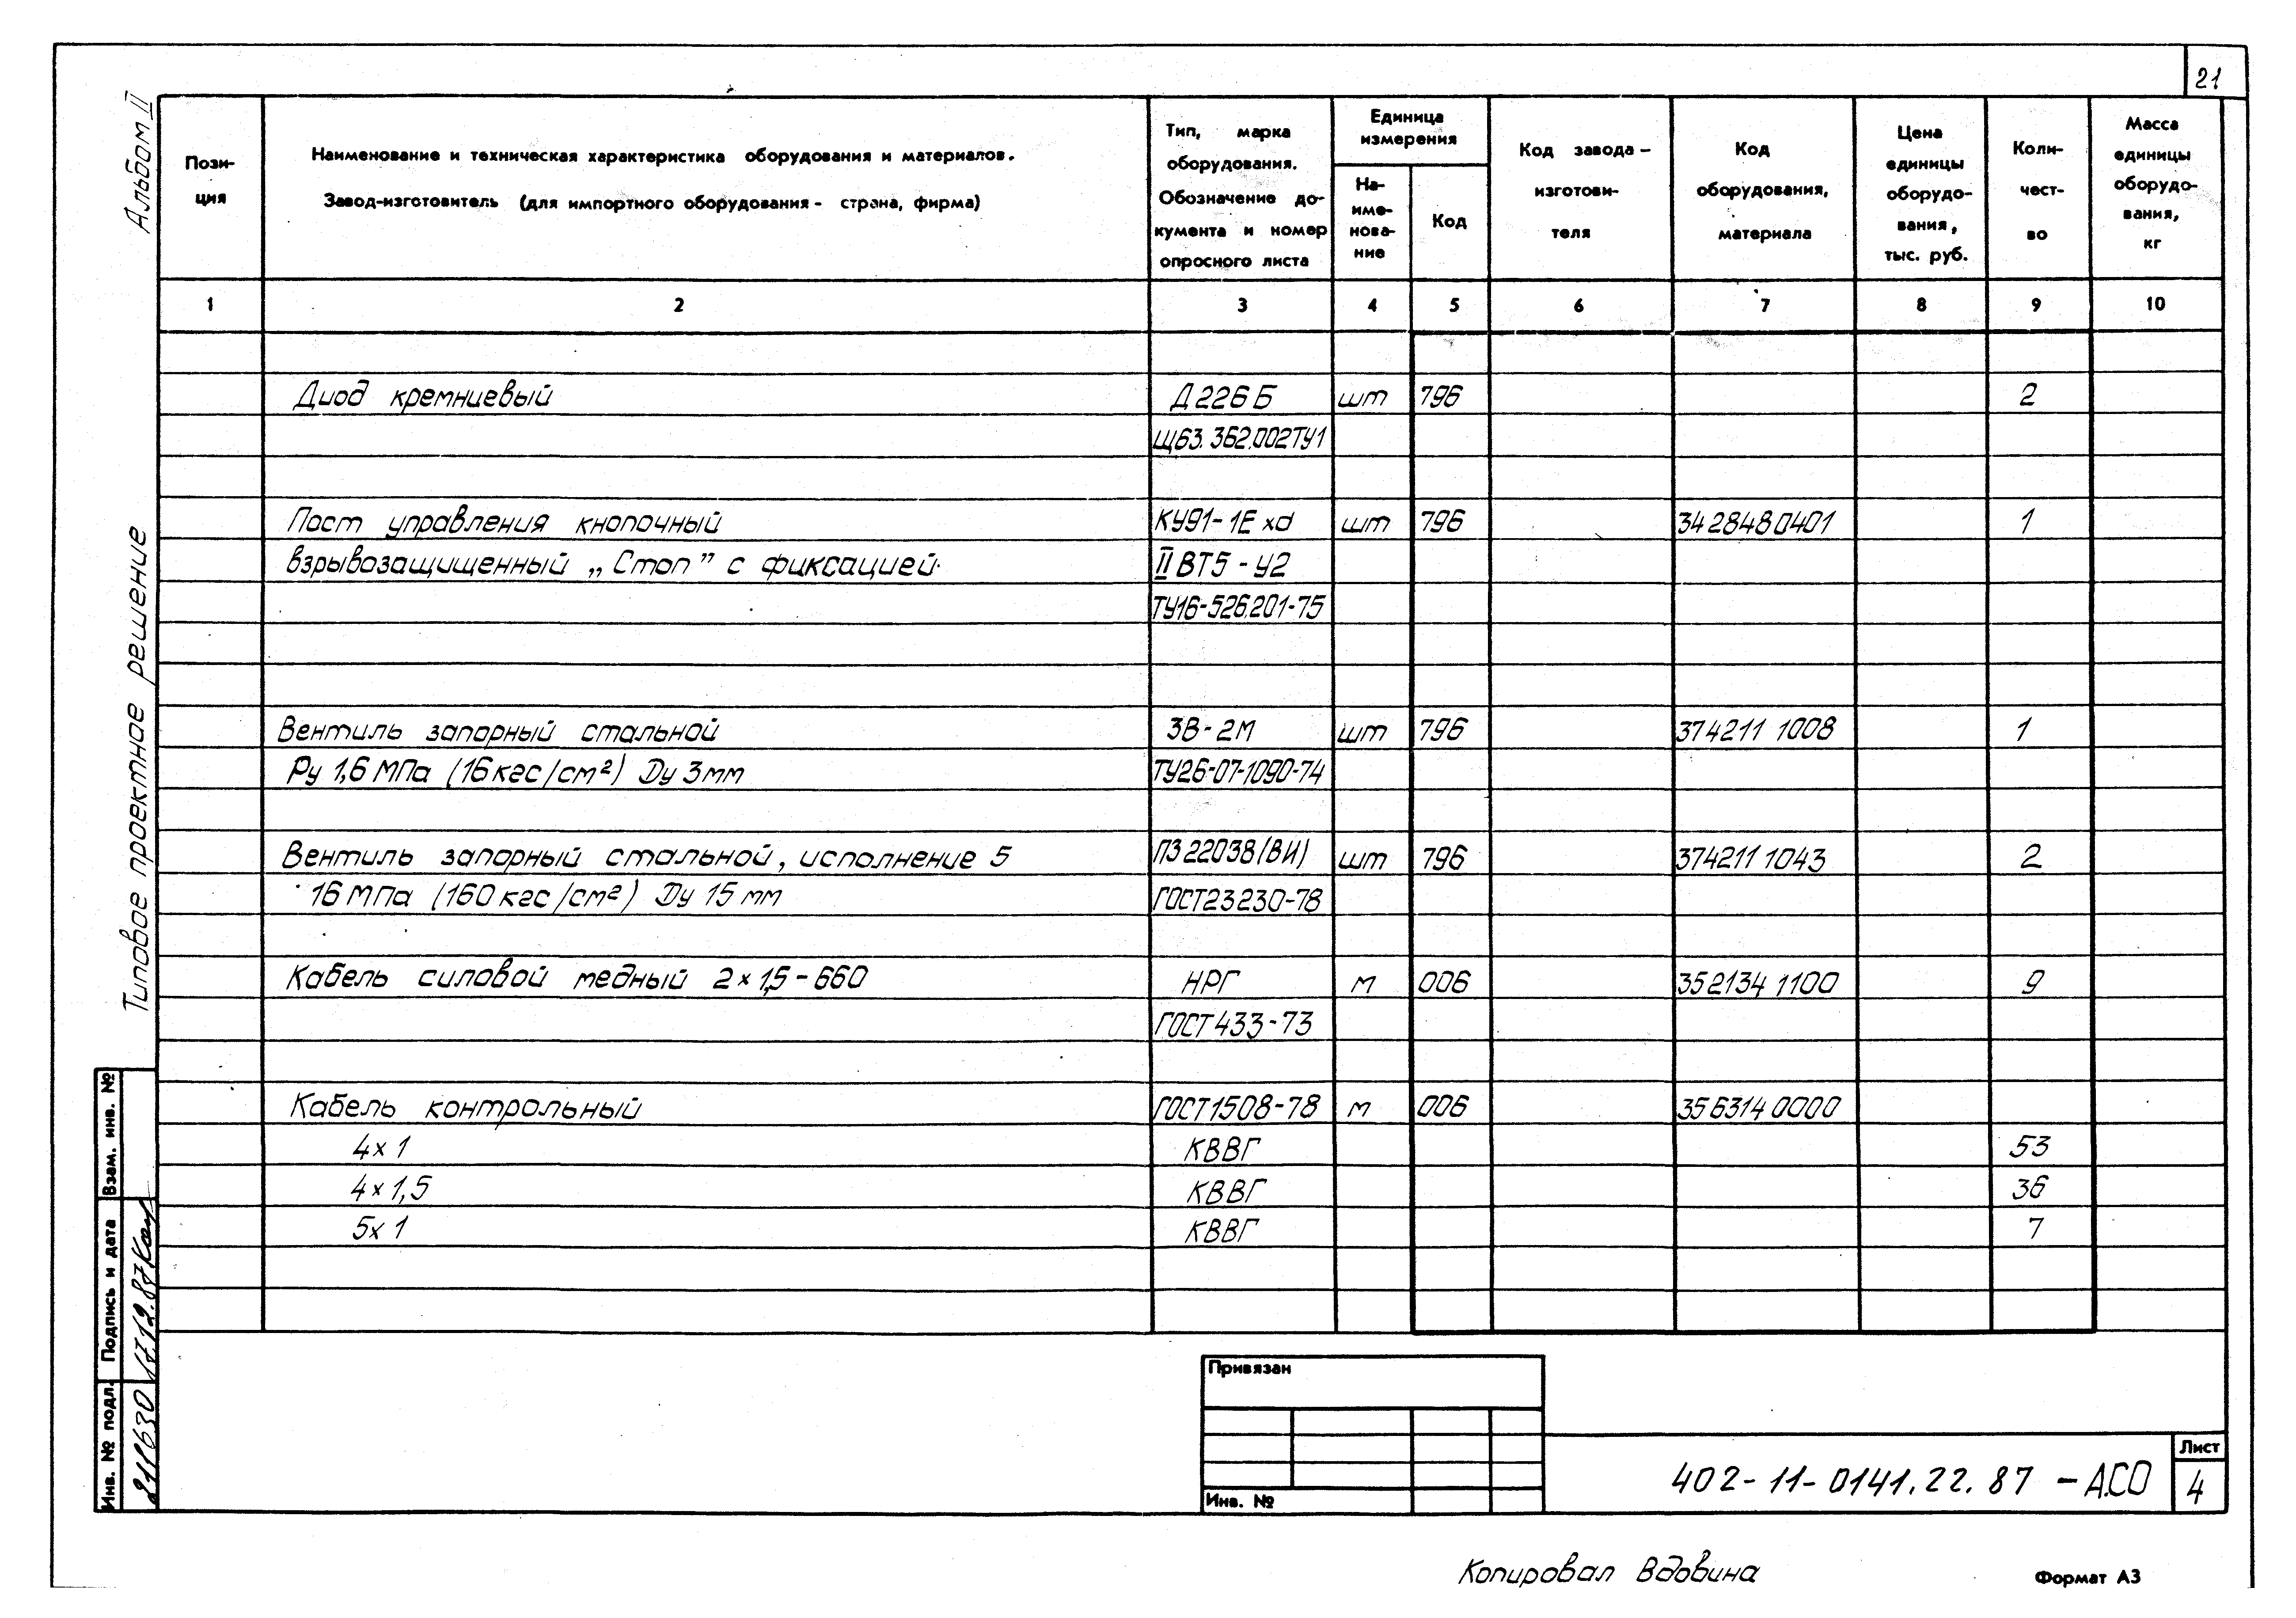 21
Альбом II
Типовое проектное решение
Пози-
ция
Наименование и техническая характеристика оборудования и материалов.
Завод-изготовитель (для импортного оборудования - страна, фирма)
Тип, марка
оборудования.
Обозначение до-
кумента и номер
опросного листа
Единица
измерения
На-
име-
нова-
ние
Код
Код завода-
изготови-
теля
Код
оборудования,
материала
Цена
единицы
оборудо-
вания,
тыс. руб.
Коли-
чест-
во
Масса
единицы
оборудо-
вания,
кг
1 2 3 4 5 6 7 8 9 10
Диод кремниевый Д226Б шт 796 2
Щ63.362.002ТУ1
Пост управления кнопочный КУ91-1Exd шт 796 3428480401 1
взрывозащищенный „Стоп" с фиксацией. II ВТ5-У2
ТУ16-526.201-75
Вентиль запорный стальной ЗВ-2М шт 796 374211 1008 1
Ру 1,6 МПа (16кгс/см²) Ду 3мм ТУ26-07-1090-74
Вентиль запорный стальной, исполнение 5 ПЗ 22038(ВИ) шт 796 374211 1043 2
16 МПа (160 кгс/см²) Ду 15 мм ГОСТ23230-78
Кабель силовой медный 2×1,5-660 НРГ м 006 352134 1100 9
ГОСТ 433-73
Кабель контрольный ГОСТ1508-78 м 006 356314 0000
4×1 КВВГ 53
4×1,5 КВВГ 36
5×1 КВВГ 7
Взам. инв. №
Подпись и дата
17.12.87
Инв. № подл.
Привязан
Инв. №
402-11-0141.22.87 -А.СО
Лист
4
Копировал Вдовина
Формат А3